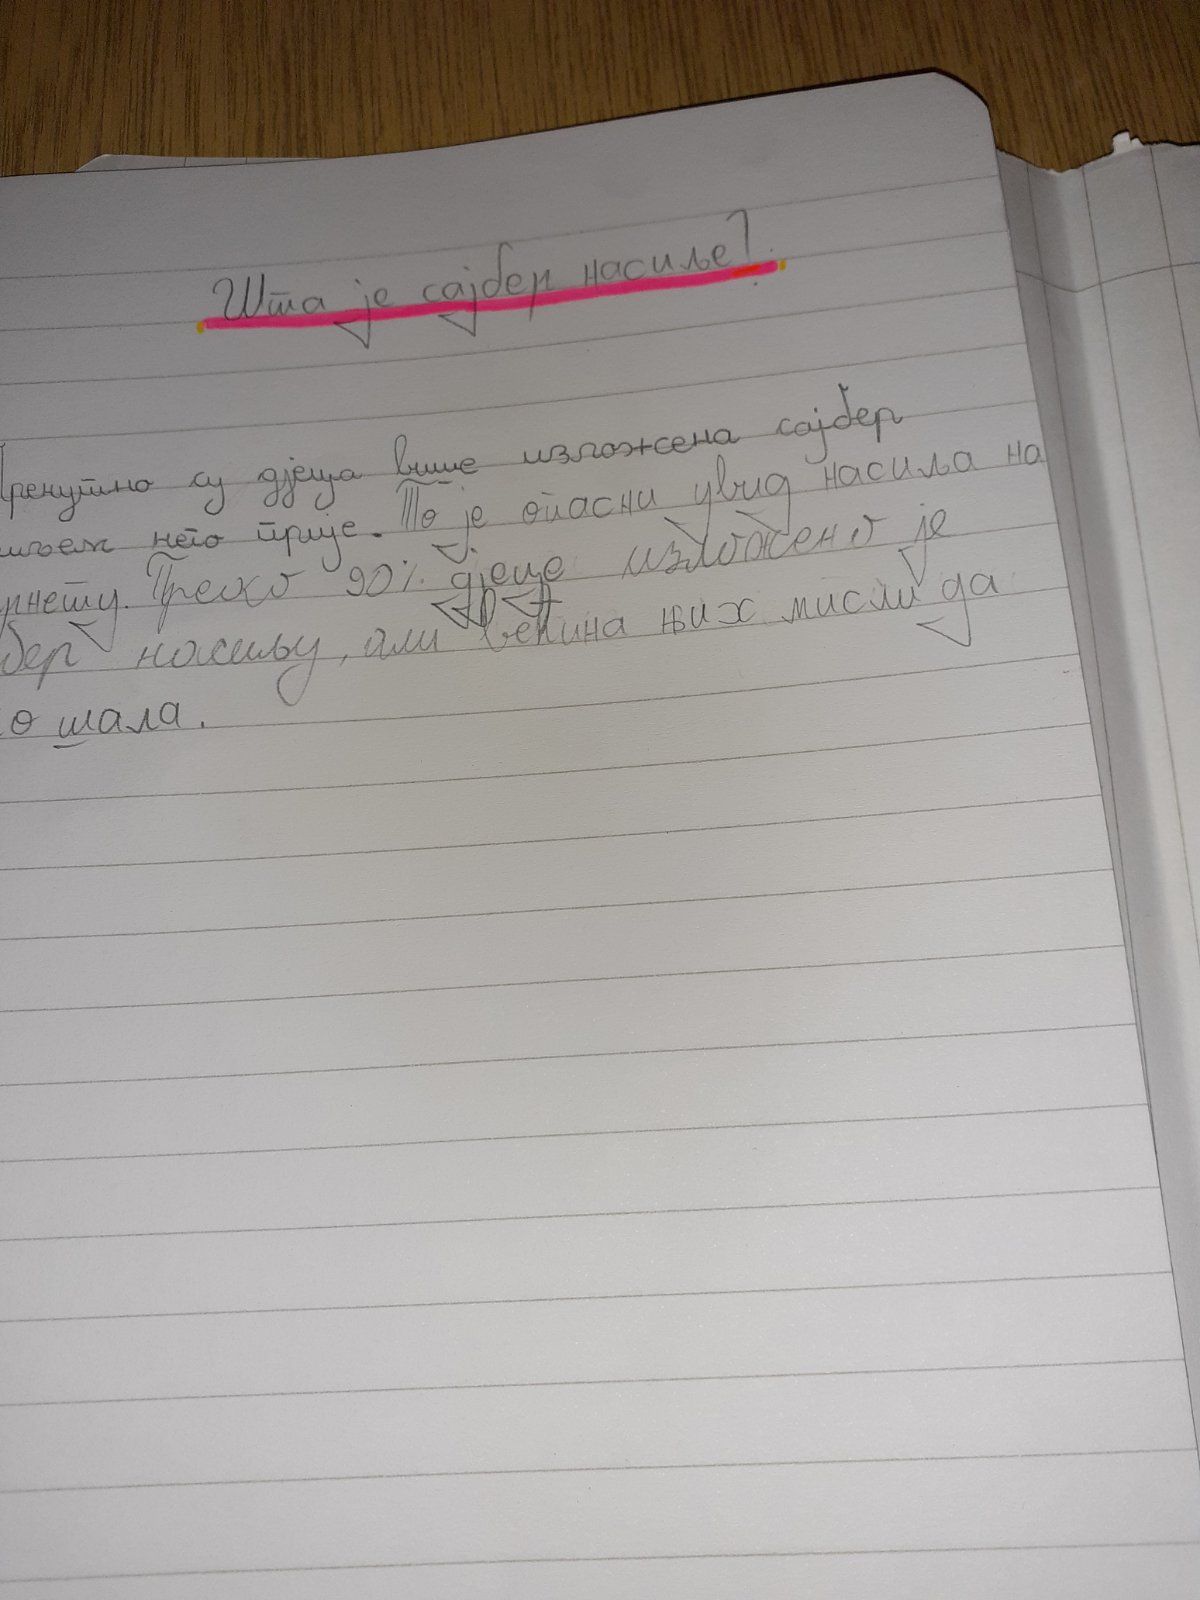 Шта је сајбер насиље?
Тренутно су дјеца више изложена сајбер
него прије. То је опасни увид насиља на
Преко 90% дјеце изложено је
насиљу, али већина њих мисли да
шала.